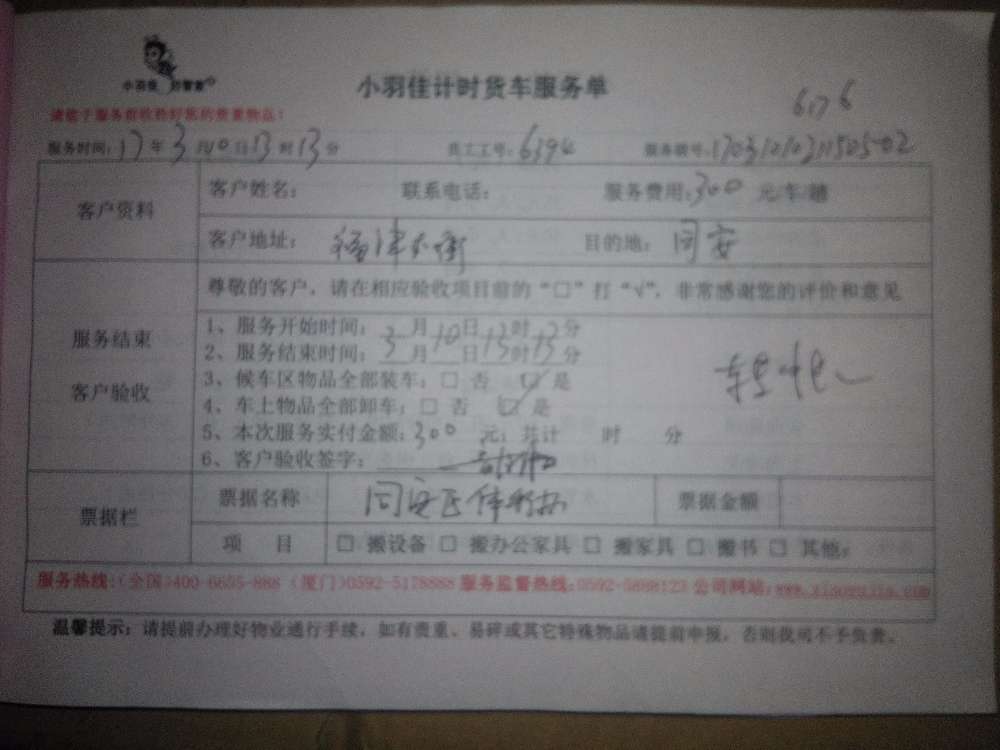 小羽佳 好管家
小羽佳计时货车服务单
6176
请您于服务前收拾好您的贵重物品!
服务时间:17年3月10日13时13分 员工工号:6394 服务单号:
客户资料
客户姓名: 联系电话: 服务费用:300 元/车/趟
客户地址: 目的地:同安
服务结束
客户验收
尊敬的客户,请在相应验收项目前的“□”打“√”,非常感谢您的评价和意见
1、服务开始时间:3月10日13时13分
2、服务结束时间:3月 日13时13分
3、候车区物品全部装车:□ 否 ☑ 是
4、车上物品全部卸车:□ 否 ☑ 是
5、本次服务实付金额:300 元;共计 时 分
6、客户验收签字:
票据栏
票据名称 同安区 票据金额
项 目 □ 搬设备 □ 搬办公家具 □ 搬家具 □ 搬书 □ 其他:
服务热线:(全国)400-6655-888 (厦门)0592-5178888 服务监督热线:0592-5888123 公司网站:www.xiaoyujia.com
温馨提示:请提前办理好物业通行手续,如有贵重、易碎或其它特殊物品请提前申报,否则我司不予负责。